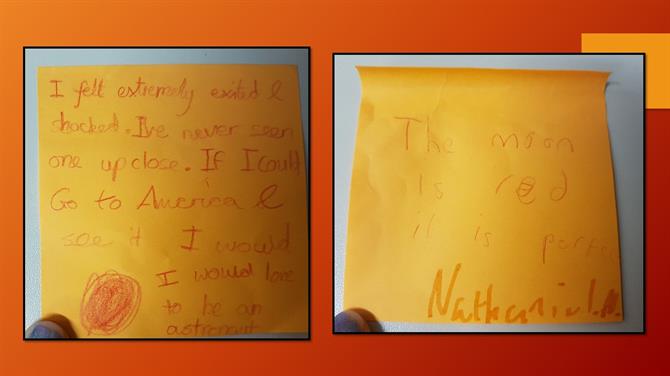 I felt extremely exited &
shocked. I've never seen
one up close. If I could
Go to America &
see it I would
I would love
to be an
astronaut
The moon
is red
it is perfec